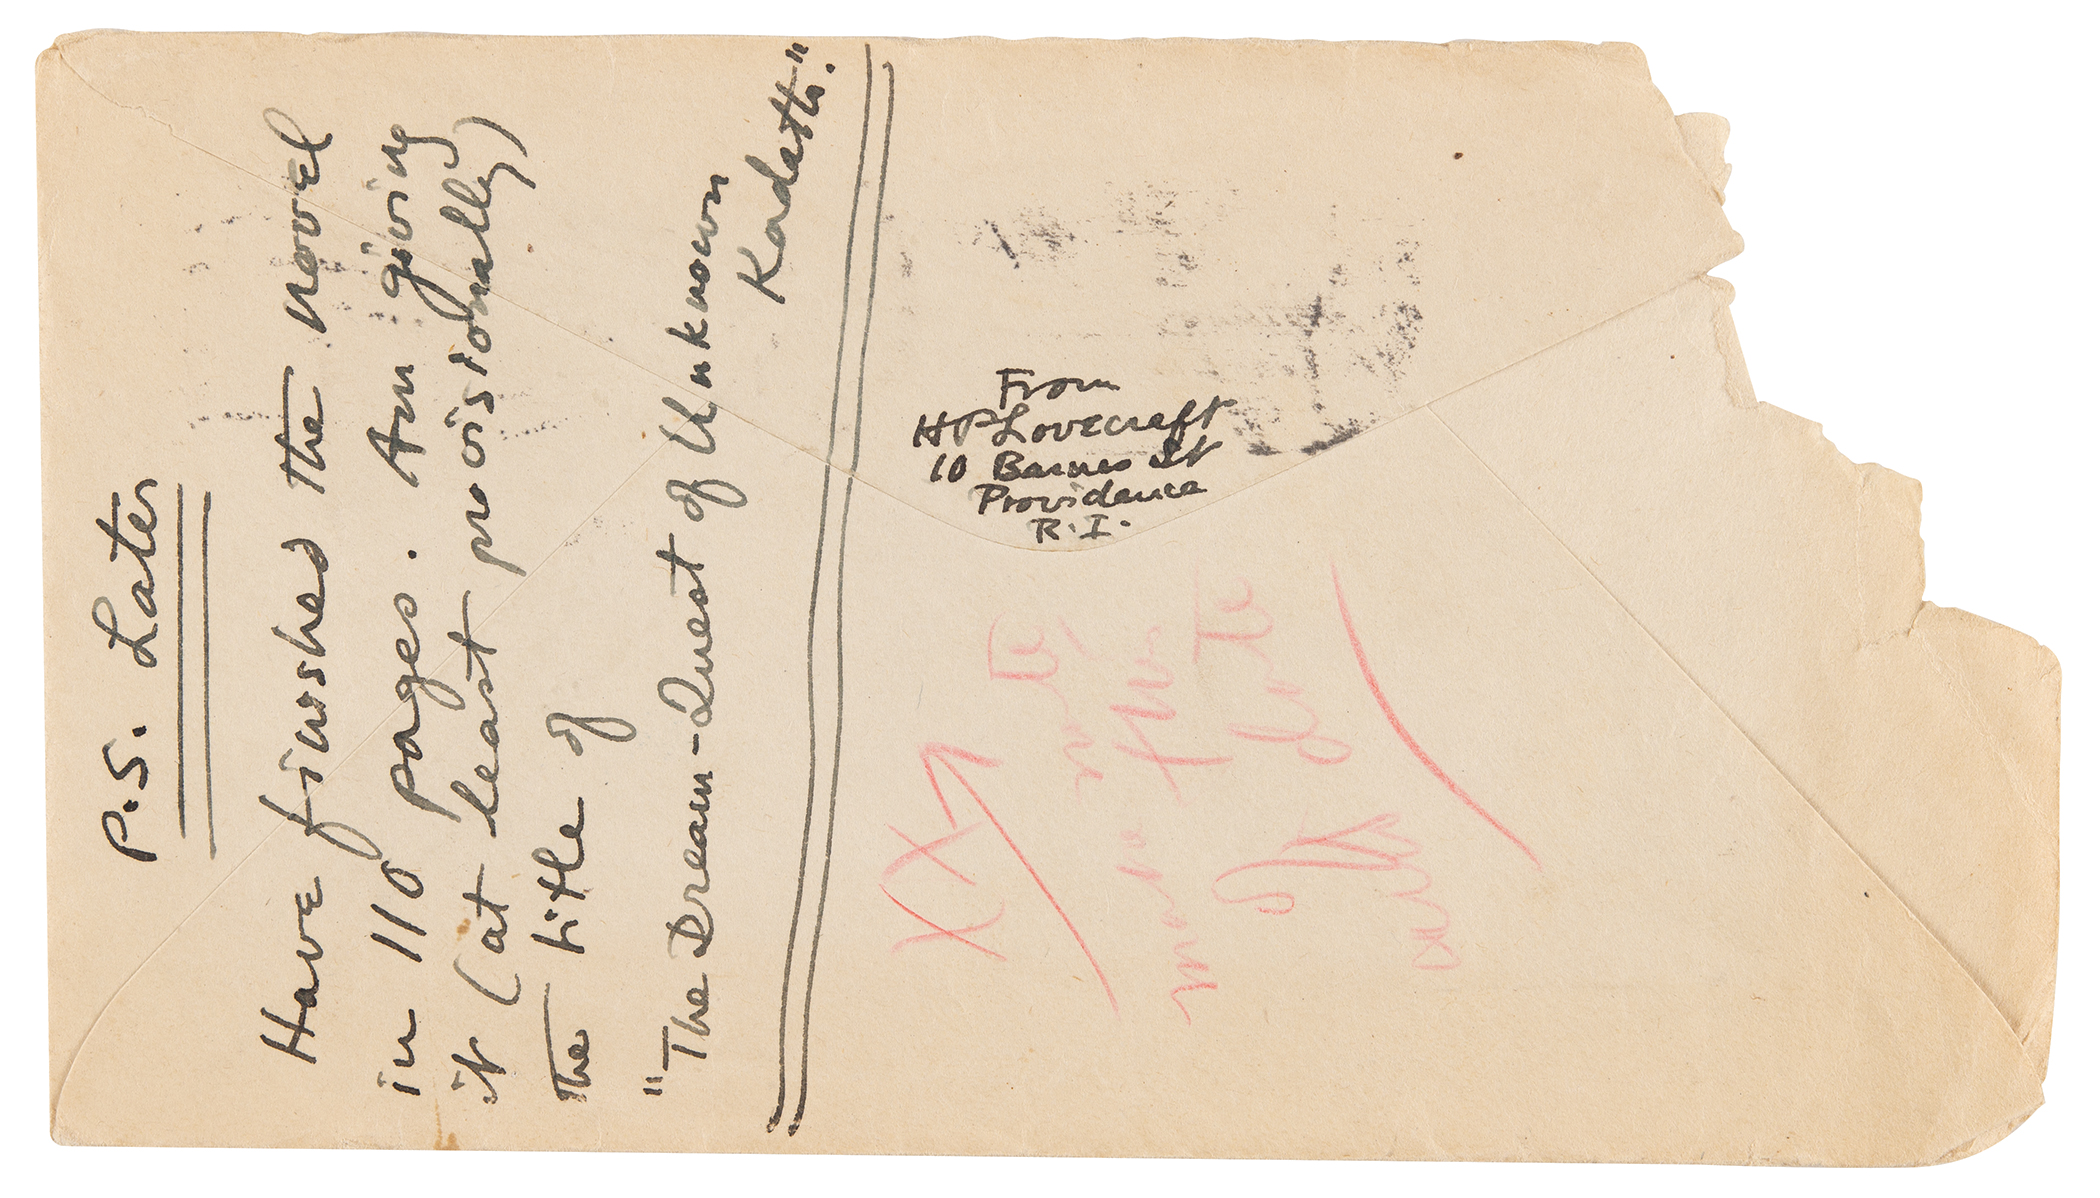 P.S. Later
Have finished the novel
in 110 pages. Am giving
it (at least provisionally)
the title of
"The Dream-Quest of Unknown
Kadath."
From
HPLovecraft
10 Barnes St
Providence
R.I.
XX
note
more this
date